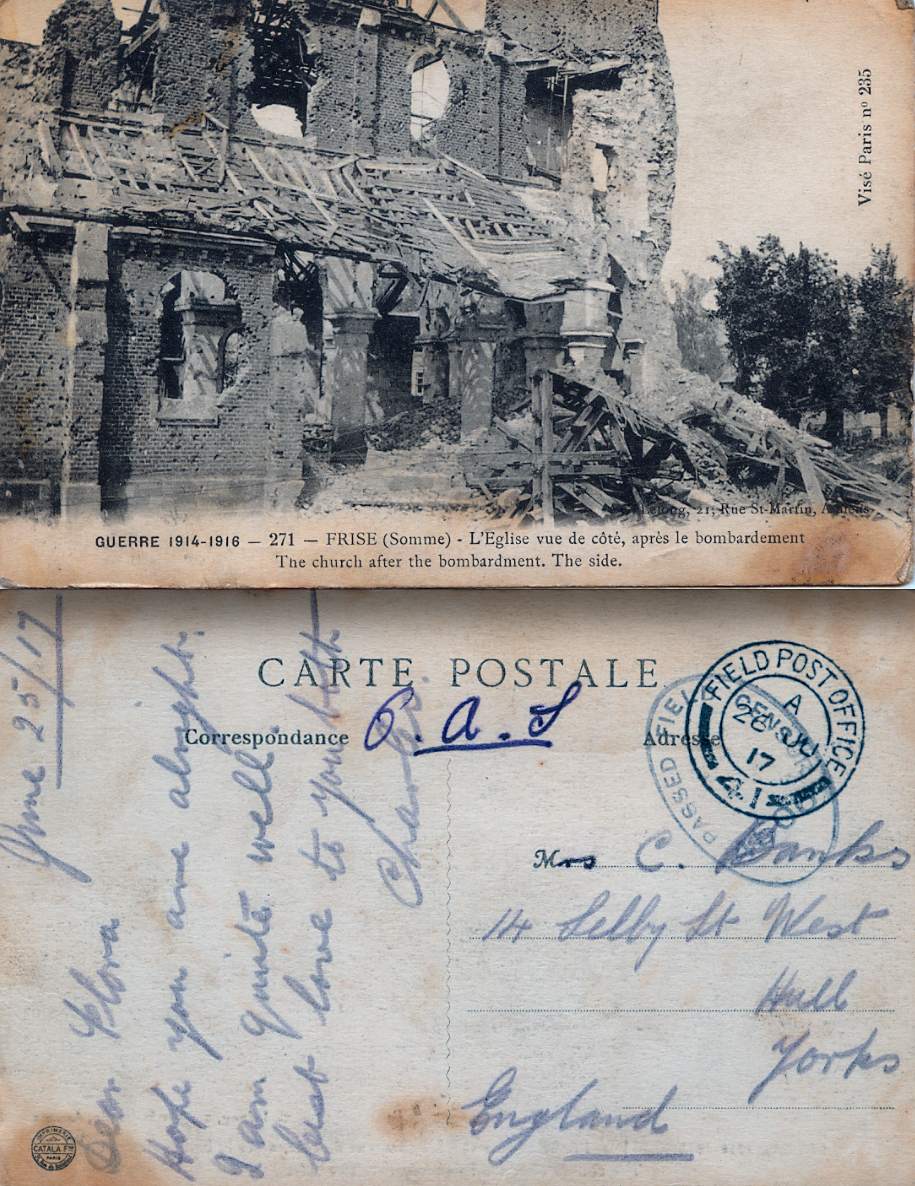 Visé Paris nº 235
Lelong, 21, Rue St-Martin, Amiens
GUERRE 1914-1916 — 271 — FRISE (Somme) - L'Eglise vue de côté, après le bombardement
The church after the bombardment. The side.
CARTE POSTALE
Correspondance
O.A.S
Adresse
PASSED FIEL
CENSOR
FIELD POST OFFICE
A
26 JU
17
41
June 25/17
Dear Flora
Hope you are alright.
I am quite well.
best love to you both
Charles.
Mrs C. Banks
14 Selby St West
Hull
Yorks
England
IMPRIMERIE
CATALA FRES
PARIS